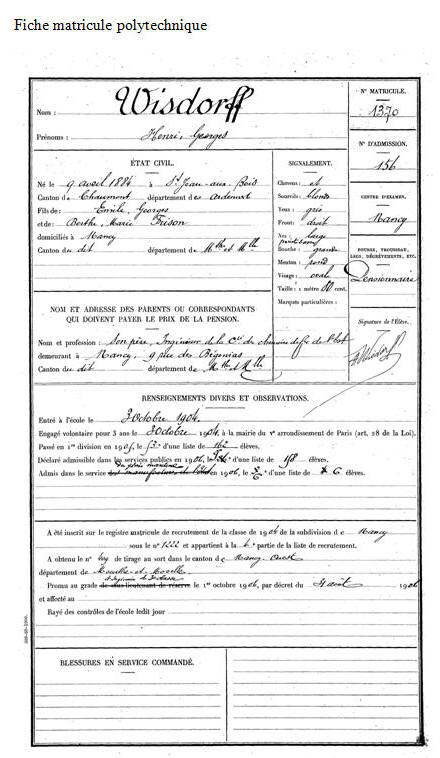 Fiche matricule polytechnique
Nom : Wisdorff
Prénoms : Henri, Georges
N° MATRICULE.
1370
N° D'ADMISSION.
156
CENTRE D'EXAMEN.
Nancy
BOURSE, TROUSSEAU,
LEGS, DÉGRÈVEMENTS, ETC.
Pensionnaire
Signature de l'Élève.
ÉTAT CIVIL.
Né le 9 avril 1884 à St Jean-aux-Bois
Canton de Chaumont département des Ardennes
Fils de : Emile, Georges
et de : Berthe, Marie Frison
domiciliés à Nancy
Canton du dit département de Mthe et Mlle
SIGNALEMENT.
Cheveux : et
Sourcils : blonds
Yeux : gris
Front : droit
Nez : large
Bouche : grande
Menton : rond
Visage : oval
Taille : 1 mètre 80 cent.
Marques particulières :
NOM ET ADRESSE DES PARENTS OU CORRESPONDANTS
QUI DOIVENT PAYER LE PRIX DE LA PENSION.
Nom et profession : Son père, Ingénieur de la Cie des chemins de fer de l'Est
demeurant à Nancy, 9 rue des Bégonias
Canton du dit département de Mthe et Mlle
RENSEIGNEMENTS DIVERS ET OBSERVATIONS.
Entré à l'école le 3 Octobre 1904.
Engagé volontaire pour 3 ans le 3 Octobre 1904, à la mairie du v° arrondissement de Paris (art. 28 de la Loi).
Passé en 1re division en 1905, le d'une liste de 162 élèves.
Déclaré admissible dans les services publics en 1906, le d'une liste de 158 élèves.
Admis dans le service en 1906, le d'une liste de 6 élèves.
A été inscrit sur le registre matricule de recrutement de la classe de 1904 de la subdivision de Nancy
sous le n° 1222 et appartient à la partie de la liste de recrutement.
A obtenu le n° de tirage au sort dans le canton de Nancy Ouest
département de Meurthe-et-Moselle
Promu au grade de sous-lieutenant de réserve le 1er octobre 1906, par décret du 4 août 1906
et affecté au
Rayé des contrôles de l'école ledit jour
BLESSURES EN SERVICE COMMANDÉ.